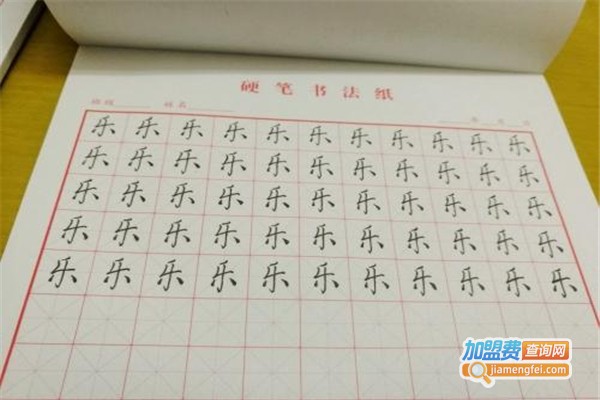 硬笔书法纸
班级 姓名
乐乐乐乐乐乐乐乐乐乐乐
乐乐乐乐乐乐乐乐乐乐乐
乐乐乐乐乐乐乐乐乐乐乐
乐乐乐乐乐乐乐乐乐乐乐
乐乐乐乐乐乐乐乐乐乐乐
加盟费查询网
jiamengfei.com